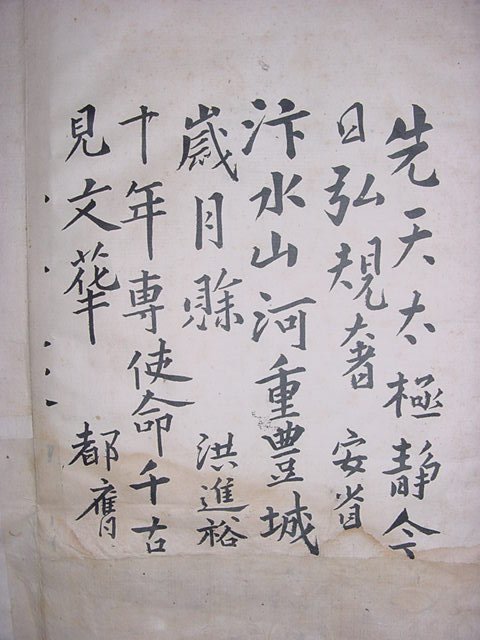 先天太極静今
日弘規奢 安省
汴水山河重豊城
歳月賖 洪進裕
十年専使命千古
見文華 都奮